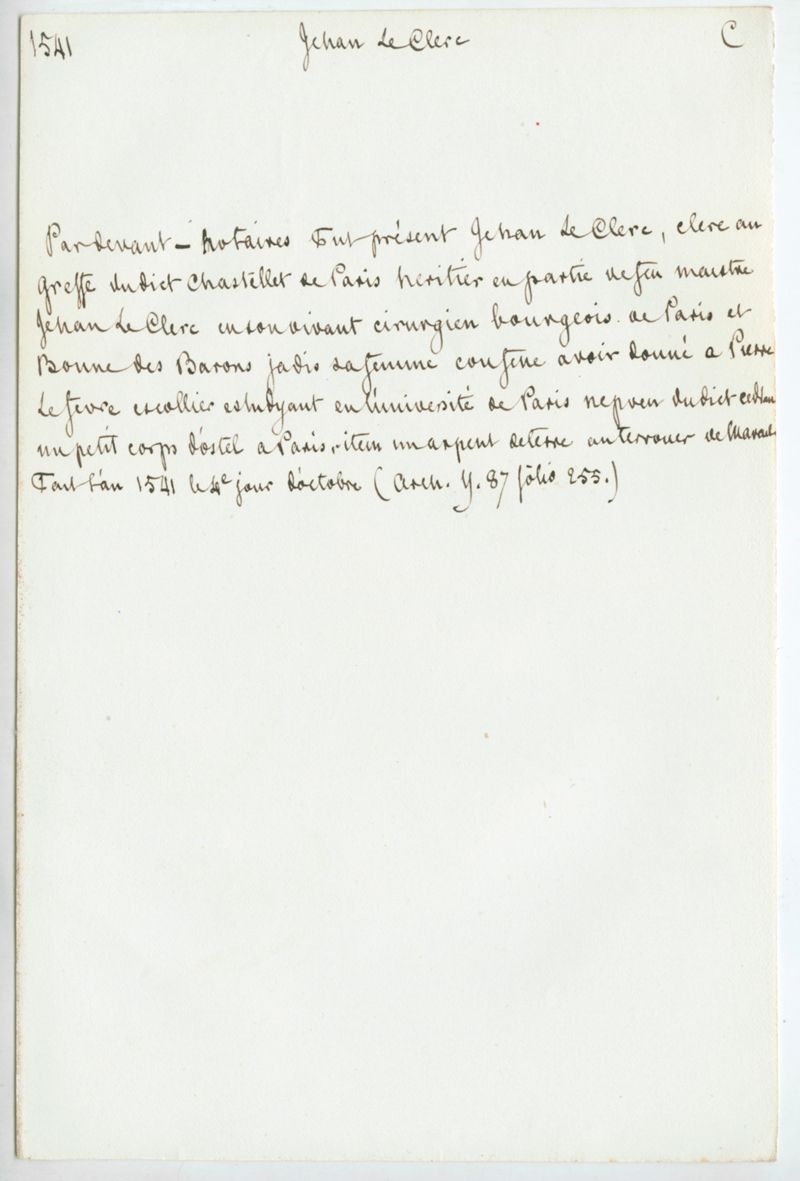 1541 Jehan Le Clerc C
Pardevant — notaires Fut présent Jehan Le Clerc, clerc au
greffe dudict Chastellet de Paris heritier en partie de feu maistre
Jehan Le Clerc en son vivant cirurgien bourgeois de Paris et
Bonne des Barons jadis sa femme confesse avoir donné a Pierre
Le fevre escollier estudyant en l'université de Paris nepveu dudict
un petit corps d'ostel a Paris, item un arpent de terre au terrouer de
Fait l'an 1541 le 4e jour d'octobre (Arch. Y. 87 folio 255.)